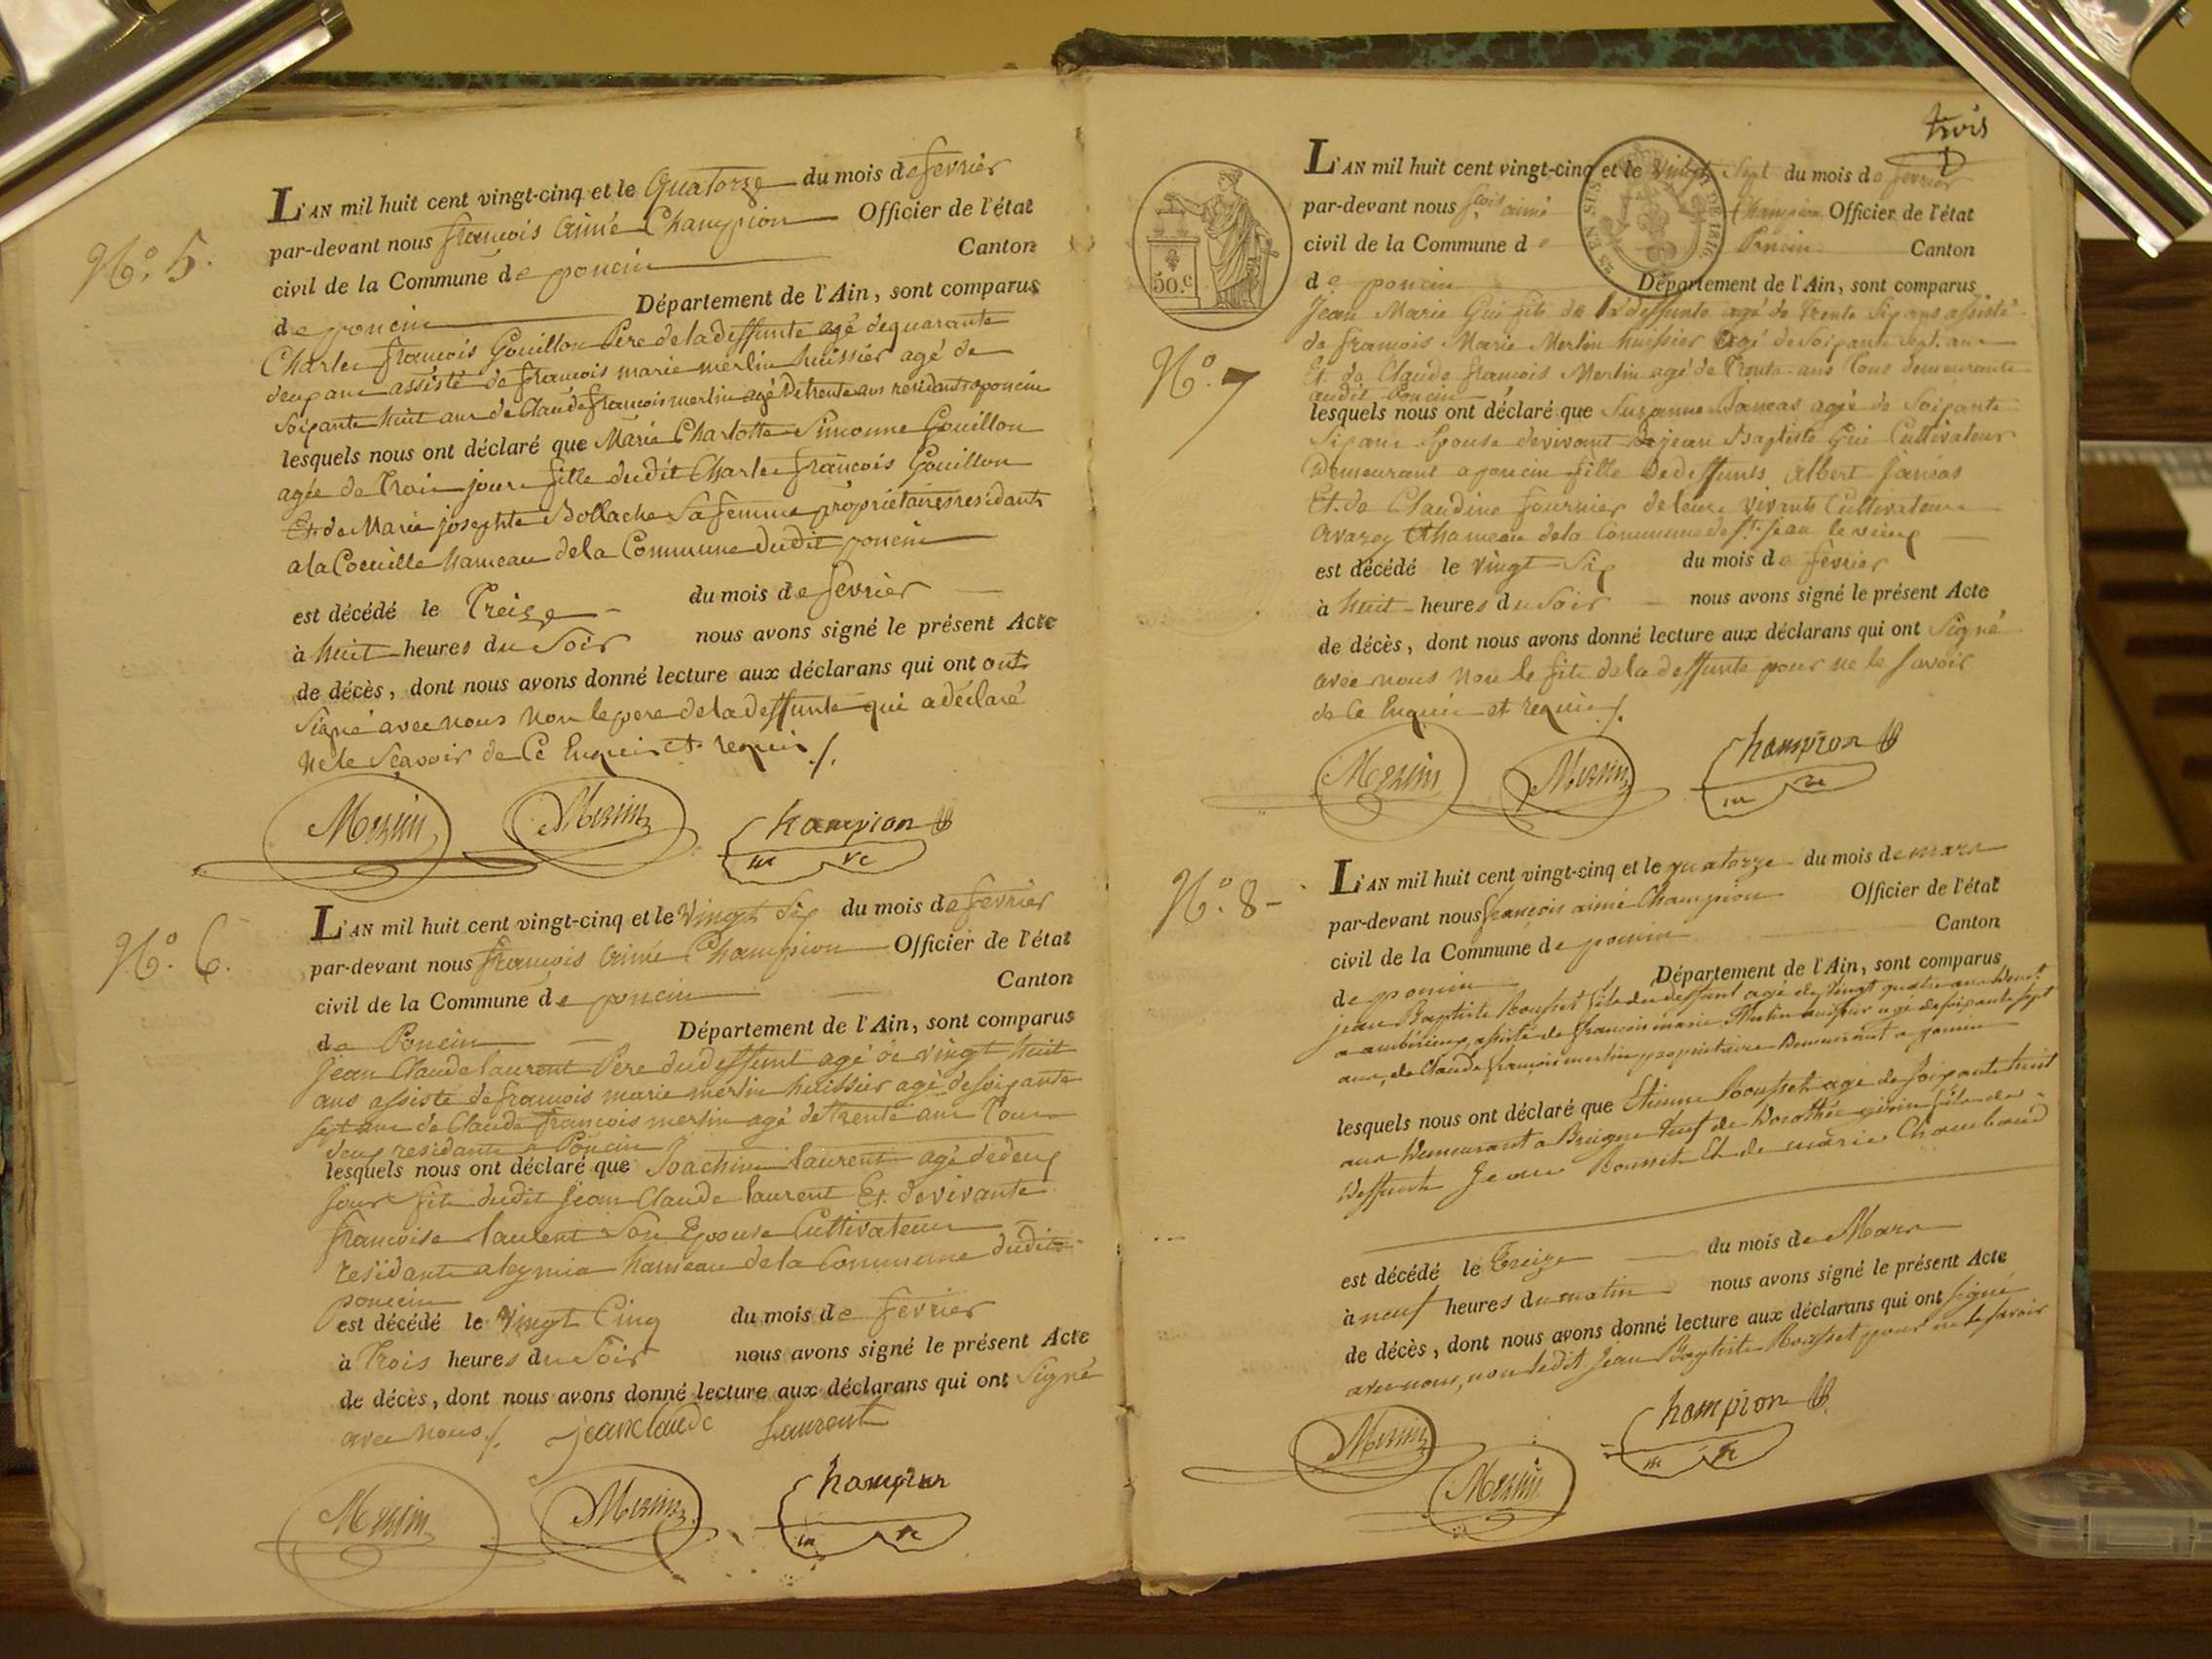 N.º 5.
L'AN mil huit cent vingt-cinq et le Quatorze du mois de fevrier
par-devant nous françois Aimé Champion Officier de l'état
civil de la Commune de poncin Canton
de poncin Département de l'Ain, sont comparus
Charles françois Gouillon Père de la deffunte agé de quarante
deux ans assisté de françois marie merlin huissier agé de
Soixante huit ans de Claude françois merlin agé de trente ans residants a poncin
lesquels nous ont déclaré que Marie Charlotte Simonne Gouillon
agée de Trois jours fille dudit Charles françois Gouillon
Et de Marie josephte Bollache Sa femme propriétaires residants
a la Cocuille hameau de la Commune dudit poncin
est décédé le Treize du mois de fevrier
à huit heures du Soir nous avons signé le présent Acte
de décès, dont nous avons donné lecture aux déclarans qui ont ont
Signé avec nous Non le pere de la deffunte qui a déclaré
Ne le Sçavoir de Ce Enquis et requis /.
Merlin Merlin Champion
N.º 6.
L'AN mil huit cent vingt-cinq et le Vingt Six du mois de fevrier
par-devant nous françois Aimé Champion Officier de l'état
civil de la Commune de poncin Canton
de Poncin Département de l'Ain, sont comparus
Jean Claude laurent Père du deffunt agé de vingt huit
ans assisté de françois marie merlin huissier agé de soixante
sept ans de Claude françois merlin agé de trente ans Tous
deux residants a Poncin
lesquels nous ont déclaré que Joachim laurent agé de deux
jours fils dudit Jean Claude laurent Et de vivante
françoise laurent Son Epouse Cultivateurs
residants a leymia hameau de la Commune dudit
poncin
est décédé le Vingt Cinq du mois de fevrier
à Trois heures du Soir nous avons signé le présent Acte
de décès, dont nous avons donné lecture aux déclarans qui ont Signé
avec nous /. jean claude Laurent
Merlin Merlin Champion
trois
50.c
N.º 7
L'AN mil huit cent vingt-cinq et le Vingt Sept du mois de fevrier
par-devant nous fçois aimé Champion Officier de l'état
civil de la Commune de Poncin Canton
de poncin Département de l'Ain, sont comparus
Jean Marie Gui fils de la deffunte agé de Trente Six ans assisté
de françois Marie Merlin huissier agé de Soixante sept ans
Et de Claude françois Merlin agé de Trente ans Tous demeurants
audit Poncin
lesquels nous ont déclaré que Suzanne Jancas agée de Soixante
Six ans Epouse de vivant de jean Baptiste Gui Cultivateur
demeurant a poncin fille de deffunts Albert Jancas
Et de Claudine fournier de leurs vivants Cultivateurs
a varey hameau de la Commune de St. Jean le vieux
est décédé le Vingt Six du mois de fevrier
à huit heures du Soir nous avons signé le présent Acte
de décès, dont nous avons donné lecture aux déclarans qui ont Signé
avec nous Non le fils de la deffunte pour ne le Savoir
de Ce Enquis et requis /.
Merlin Merlin Champion
N.º 8
L'AN mil huit cent vingt-cinq et le quatorze du mois de mars
par-devant nous françois aimé Champion Officier de l'état
civil de la Commune de poncin Canton
de poncin Département de l'Ain, sont comparus
jean Baptiste Rousset fils du deffunt agé de Vingt quatre ans
a ambérieux, assisté de françois marie Merlin huissier agé de soixante sept
ans, de Claude françois merlin propriétaire Demeurant a poncin
lesquels nous ont déclaré que Etienne Rousset agé de soixante huit
ans Demeurant a Breigne Veuf de Dorothée fils de
deffunts Jean Rousset Et de marie Chambard
est décédé le Treize du mois de Mars
à neuf heures du matin nous avons signé le présent Acte
de décès, dont nous avons donné lecture aux déclarans qui ont signé
avec nous, non ledit Jean Baptiste Rousset pour ne le savoir
Merlin Merlin Champion